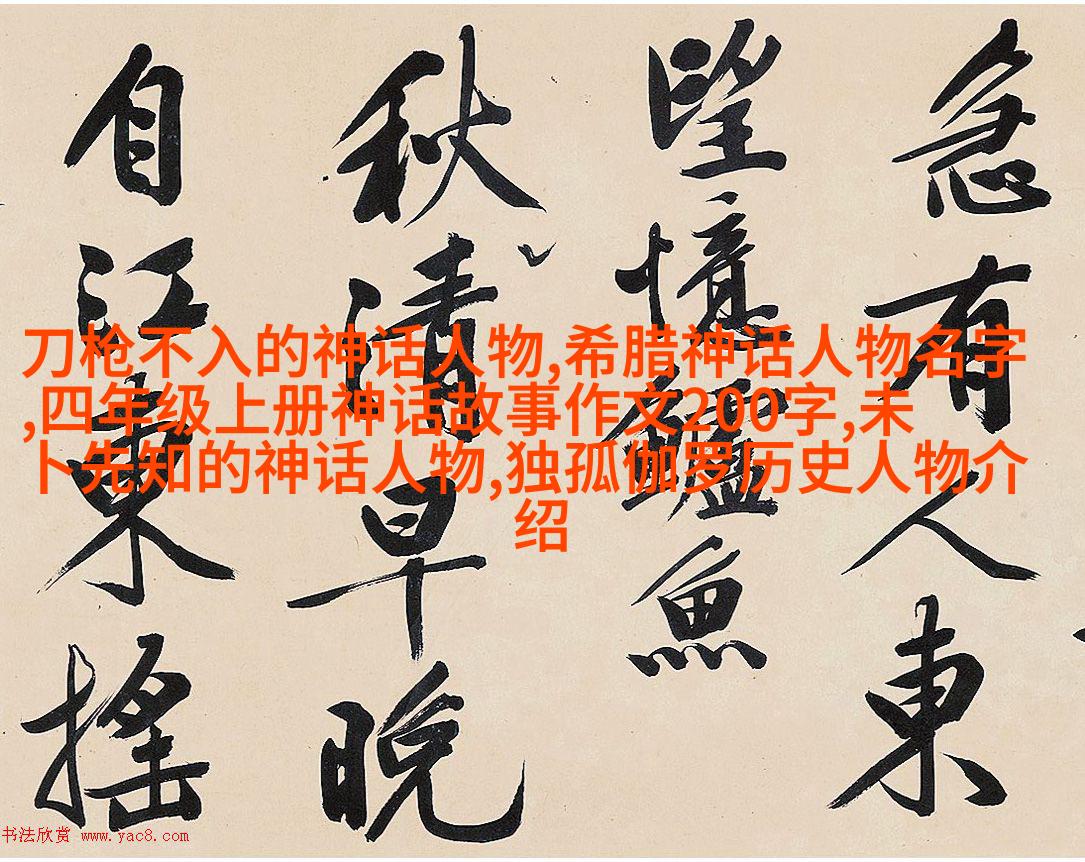 急有人東
望憶鱸魚
秋清早晚
自江東搖
刀枪不入的神话人物,希腊神话人物名字
,四年级上册神话故事作文200字,未
卜先知的神话人物,独孤伽罗历史人物介
绍
书法欣赏 www.yac8.com